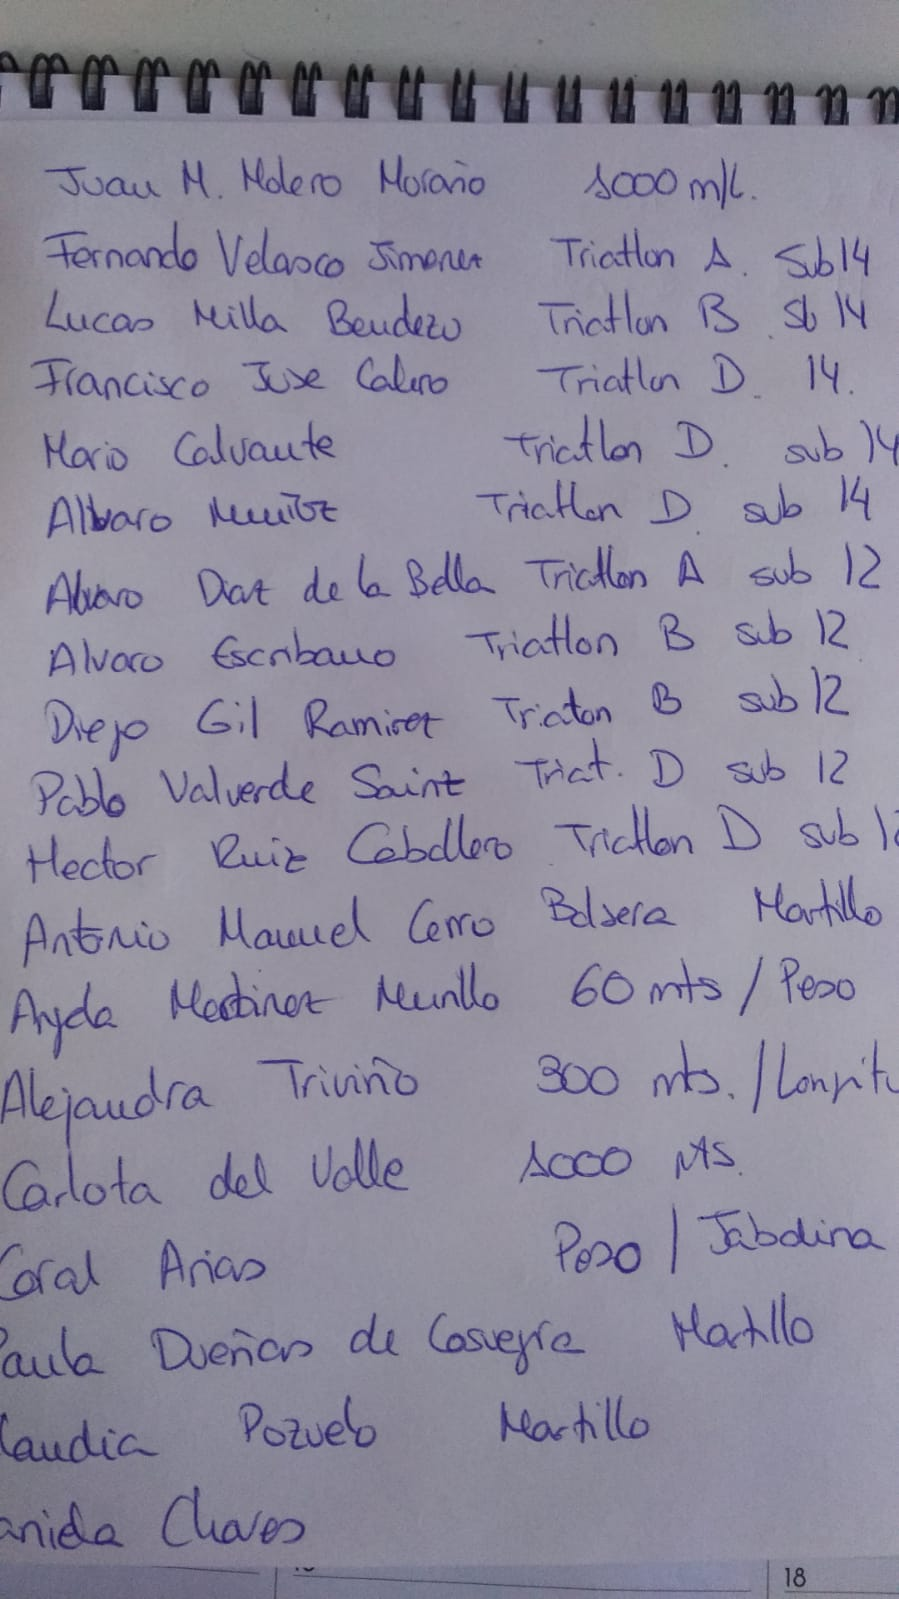 Juan M. Molero Moraño 1000 m/l.
Fernando Velasco Jimenez Triatlon A. Sub 14
Lucas Milla Bendezu Triatlon B Sb 14
Francisco Jose Calero Triatlon D. 14.
Mario Calvante Triatlon D. sub 14
Alvaro Triatlon D. sub 14
Alvaro Diaz de la Bella Triatlon A sub 12
Alvaro Escribano Triatlon B sub 12
Diego Gil Ramirez Triaton B sub 12
Pablo Valverde Sainz Triat. D sub 12
Hector Ruiz Caballero Triatlon D sub
Antonio Manuel Cerro Balsera Martillo
Ayda Martinez Murillo 60 mts / Peso
Alejandra Triviño 300 mts. / Longitu
Carlota del Valle 1000 mts.
Coral Arias Peso / Jabalina
Paula Dueñas de Consuegra Martillo
laudia Pozuelo Martillo
anida Chaves
18